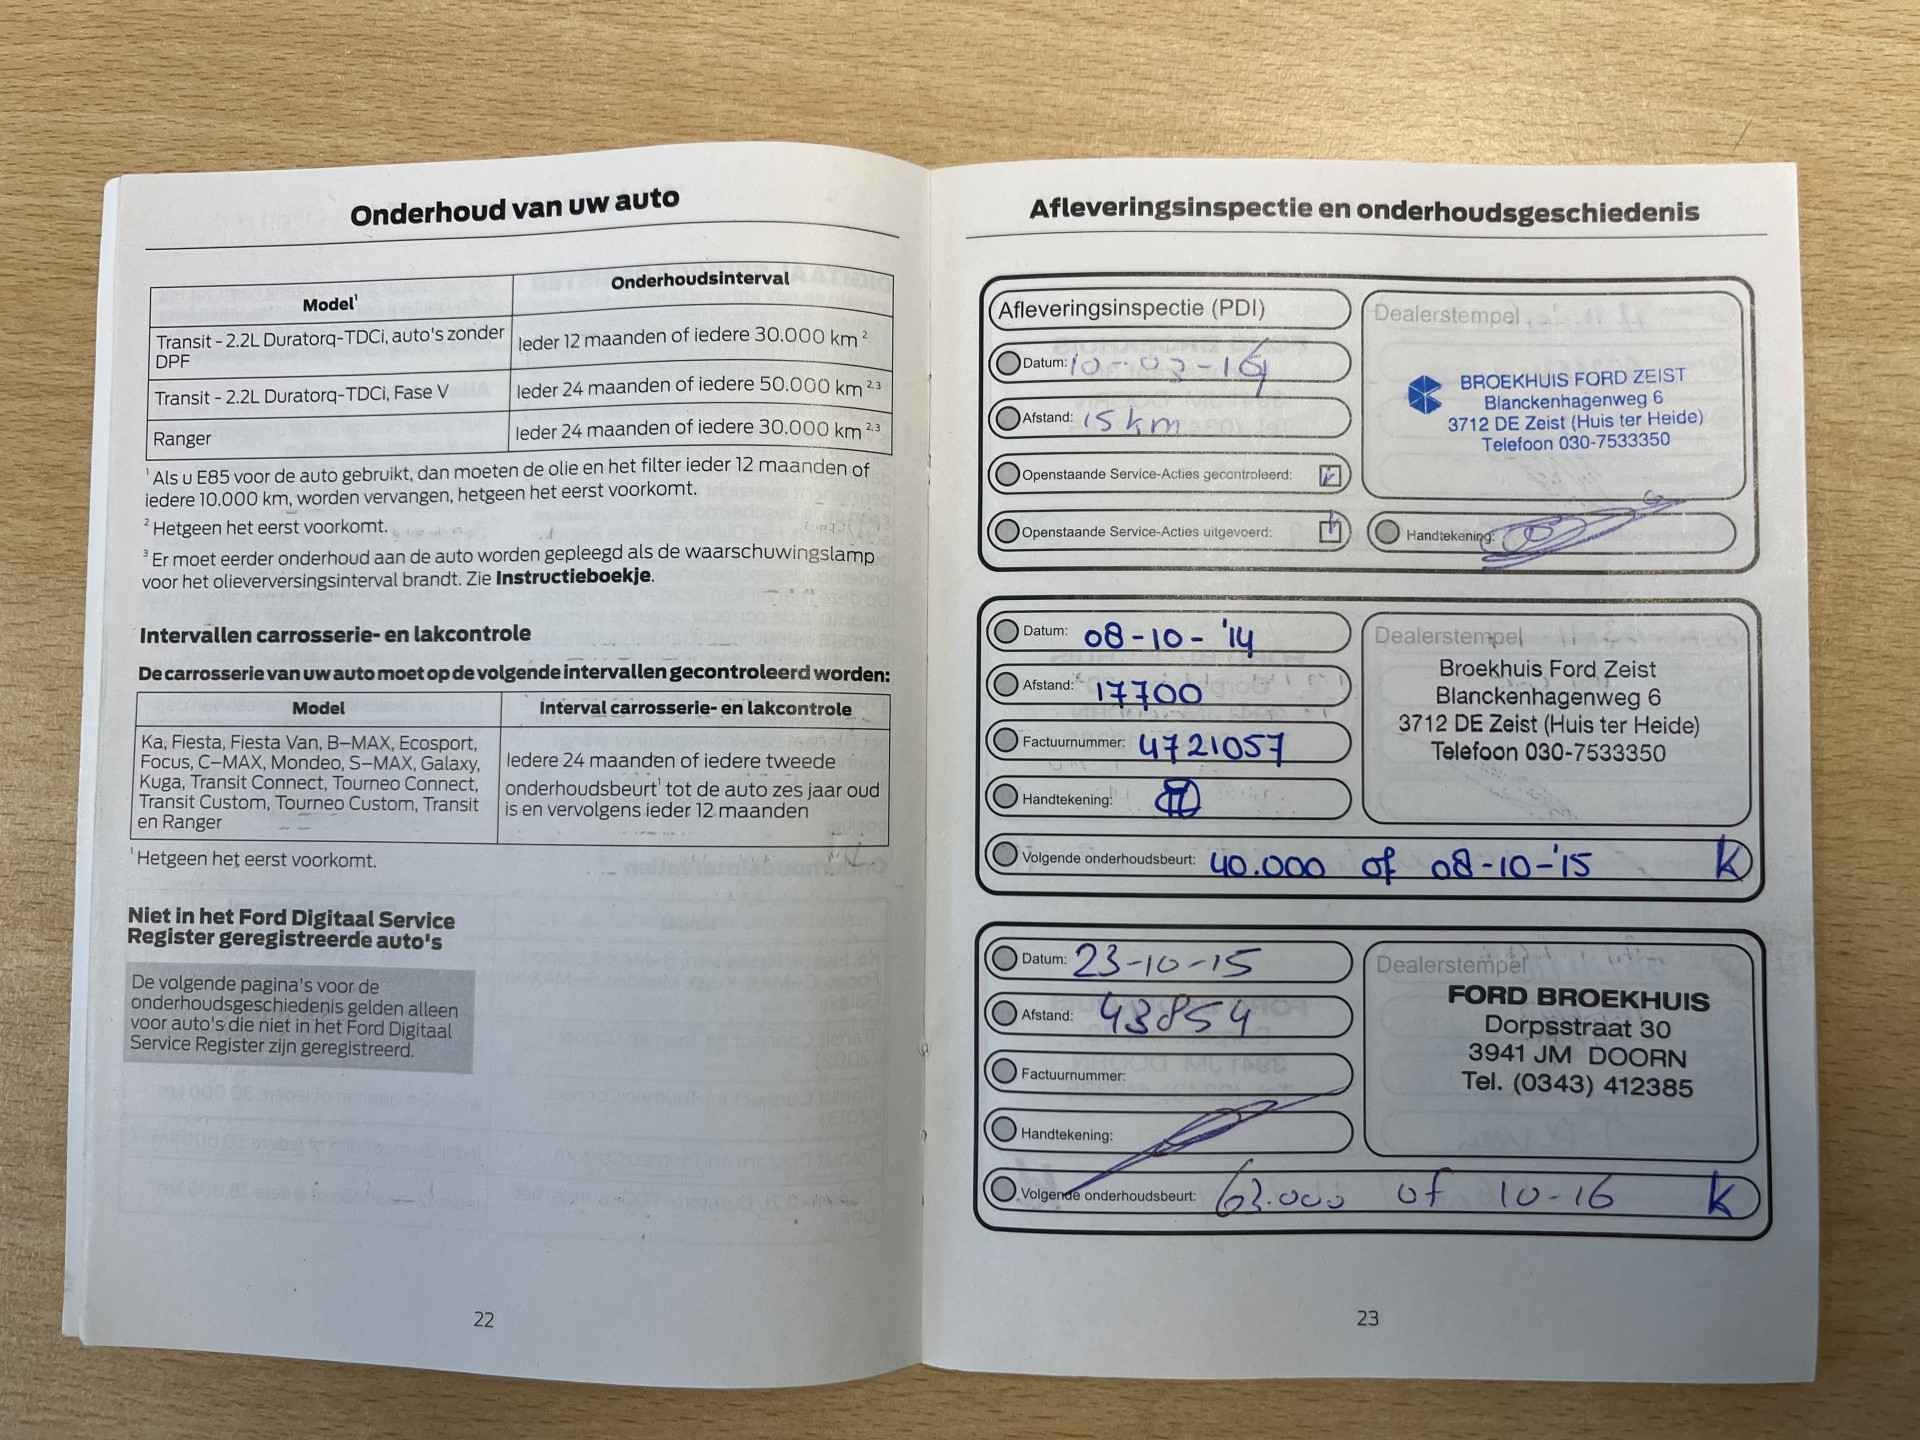 Onderhoud van uw auto
Model¹
Onderhoudsinterval
Transit - 2.2L Duratorq-TDCi, auto's zonder
DPF
Ieder 12 maanden of iedere 30.000 km ²
Transit - 2.2L Duratorq-TDCi, Fase V
Ieder 24 maanden of iedere 50.000 km ²,³
Ranger
Ieder 24 maanden of iedere 30.000 km ²,³
¹ Als u E85 voor de auto gebruikt, dan moeten de olie en het filter ieder 12 maanden of
iedere 10.000 km, worden vervangen, hetgeen het eerst voorkomt.
² Hetgeen het eerst voorkomt.
³ Er moet eerder onderhoud aan de auto worden gepleegd als de waarschuwingslamp
voor het olieverversingsinterval brandt. Zie Instructieboekje.
Intervallen carrosserie- en lakcontrole
De carrosserie van uw auto moet op de volgende intervallen gecontroleerd worden:
Model
Interval carrosserie- en lakcontrole
Ka, Fiesta, Fiesta Van, B–MAX, Ecosport,
Focus, C–MAX, Mondeo, S–MAX, Galaxy,
Kuga, Transit Connect, Tourneo Connect,
Transit Custom, Tourneo Custom, Transit
en Ranger
Iedere 24 maanden of iedere tweede
onderhoudsbeurt¹ tot de auto zes jaar oud
is en vervolgens ieder 12 maanden
¹ Hetgeen het eerst voorkomt.
Niet in het Ford Digitaal Service
Register geregistreerde auto's
De volgende pagina's voor de
onderhoudsgeschiedenis gelden alleen
voor auto's die niet in het Ford Digitaal
Service Register zijn geregistreerd.
22
Afleveringsinspectie en onderhoudsgeschiedenis
Afleveringsinspectie (PDI)
Datum: 10-03-14
Afstand: 15 km
Openstaande Service-Acties gecontroleerd:
Openstaande Service-Acties uitgevoerd:
Dealerstempel
BROEKHUIS FORD ZEIST
Blanckenhagenweg 6
3712 DE Zeist (Huis ter Heide)
Telefoon 030-7533350
Handtekening:
Datum: 08-10-'14
Afstand: 17700
Factuurnummer: 4721057
Handtekening:
Dealerstempel
Broekhuis Ford Zeist
Blanckenhagenweg 6
3712 DE Zeist (Huis ter Heide)
Telefoon 030-7533350
Volgende onderhoudsbeurt: 40.000 of 08-10-'15 K
Datum: 23-10-15
Afstand: 43854
Factuurnummer:
Handtekening:
Dealerstempel
FORD BROEKHUIS
Dorpsstraat 30
3941 JM DOORN
Tel. (0343) 412385
Volgende onderhoudsbeurt: 63.000 of 10-16 K
23